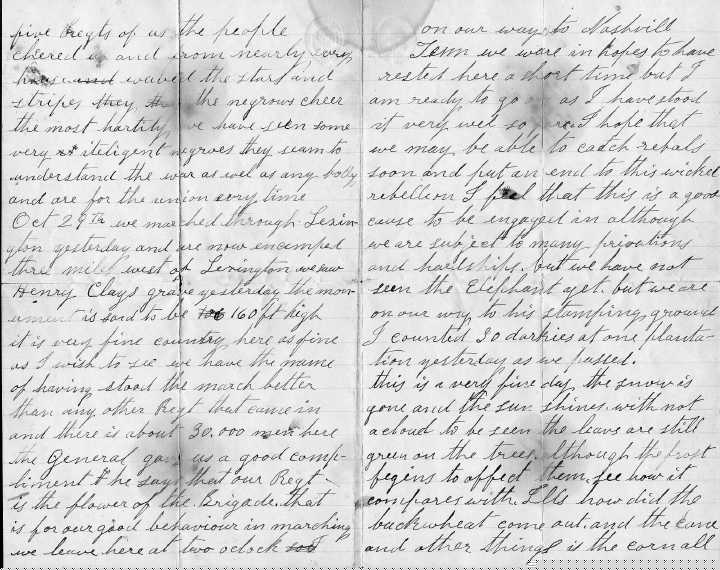 five regts of us the people
cheered us and from nearly every
house waved the stars and
stripes they, the negrows cheer
the most hartily, we have seen some
very iteligent negroes they seam to
understand the war as well as any bolly
and are for the union every time
Oct 29th we marched through Lexin-
gton yesterday and are now encamped
three miles west of Lexington we saw
Henry Clays grave yesterday the mon-
ument is said to be 160 ft high
it is very fine country here as fine
as I wish to see we have the name
of having stood the march better
than any other Regt that came in
and there is about 30,000 men here
the General gave us a good comp-
liment he says that our Regt -
is the flower of the Brigade. that
is for our good behaviour in marching
we leave here at two oclock
on our way to Nashvill
Tenn we were in hopes to have
rested here a short time but I
am ready to go on as I have stood
it very well so far. I hope that
we may be able to catch rebals
soon and put an end to this wicked
rebellion I feel that this is a good
cause to be engaged in although
we are subject to many privations
and hardships. but we have not
seen the Elephant yet. but we are
on our way to his stamping ground
I counted 30 darkies at one planta-
tion yesterday as we passed.
this is a very fine day the snow is
gone and the sun shines with not
a cloud to be seen the leavs are still
green on the trees. although the frost
begins to affect them, see how it
compares with Ills how did the
buckwheat come out. and the cane
and other things is the corn all